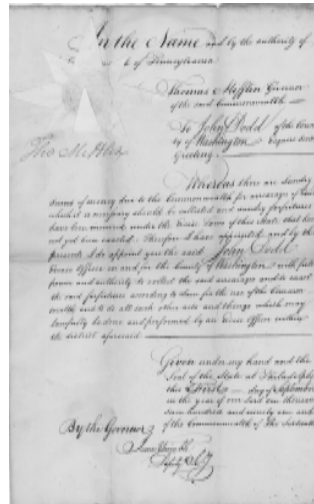 In the Name and by the authority of
of Pennsylvania
Thomas Mifflin Governor
of the said Commonwealth
To John Dodd of the Coun
ty of Washington Esquire Sends
Greeting
Tho Mifflin
Whereas there are Sundry
sums of money due to the Commonwealth for arrearages of Excise
which it is necessary should be collected and sundry forfeitures
have been incurred under the Excise Laws of this State that have
not yet been exacted. Therefore I have appointed and by these
presents I do appoint you the said John Dodd
Excise Officer in and for the County of Washington with full
power and authority to collect the said arrearages and to exact
the said forfeitures according to Law for the use of the Common
wealth and to do all such other acts and things which may
lawfully be done and performed by an Excise Officer within
the district aforesaid
Given under my hand and the
Seal of the State at Philadelphia
this First day of September
in the year of our Lord one thousand
seven hundred and ninety one and
of the Commonwealth the Sixteenth
By the Governor
Deputy Secy